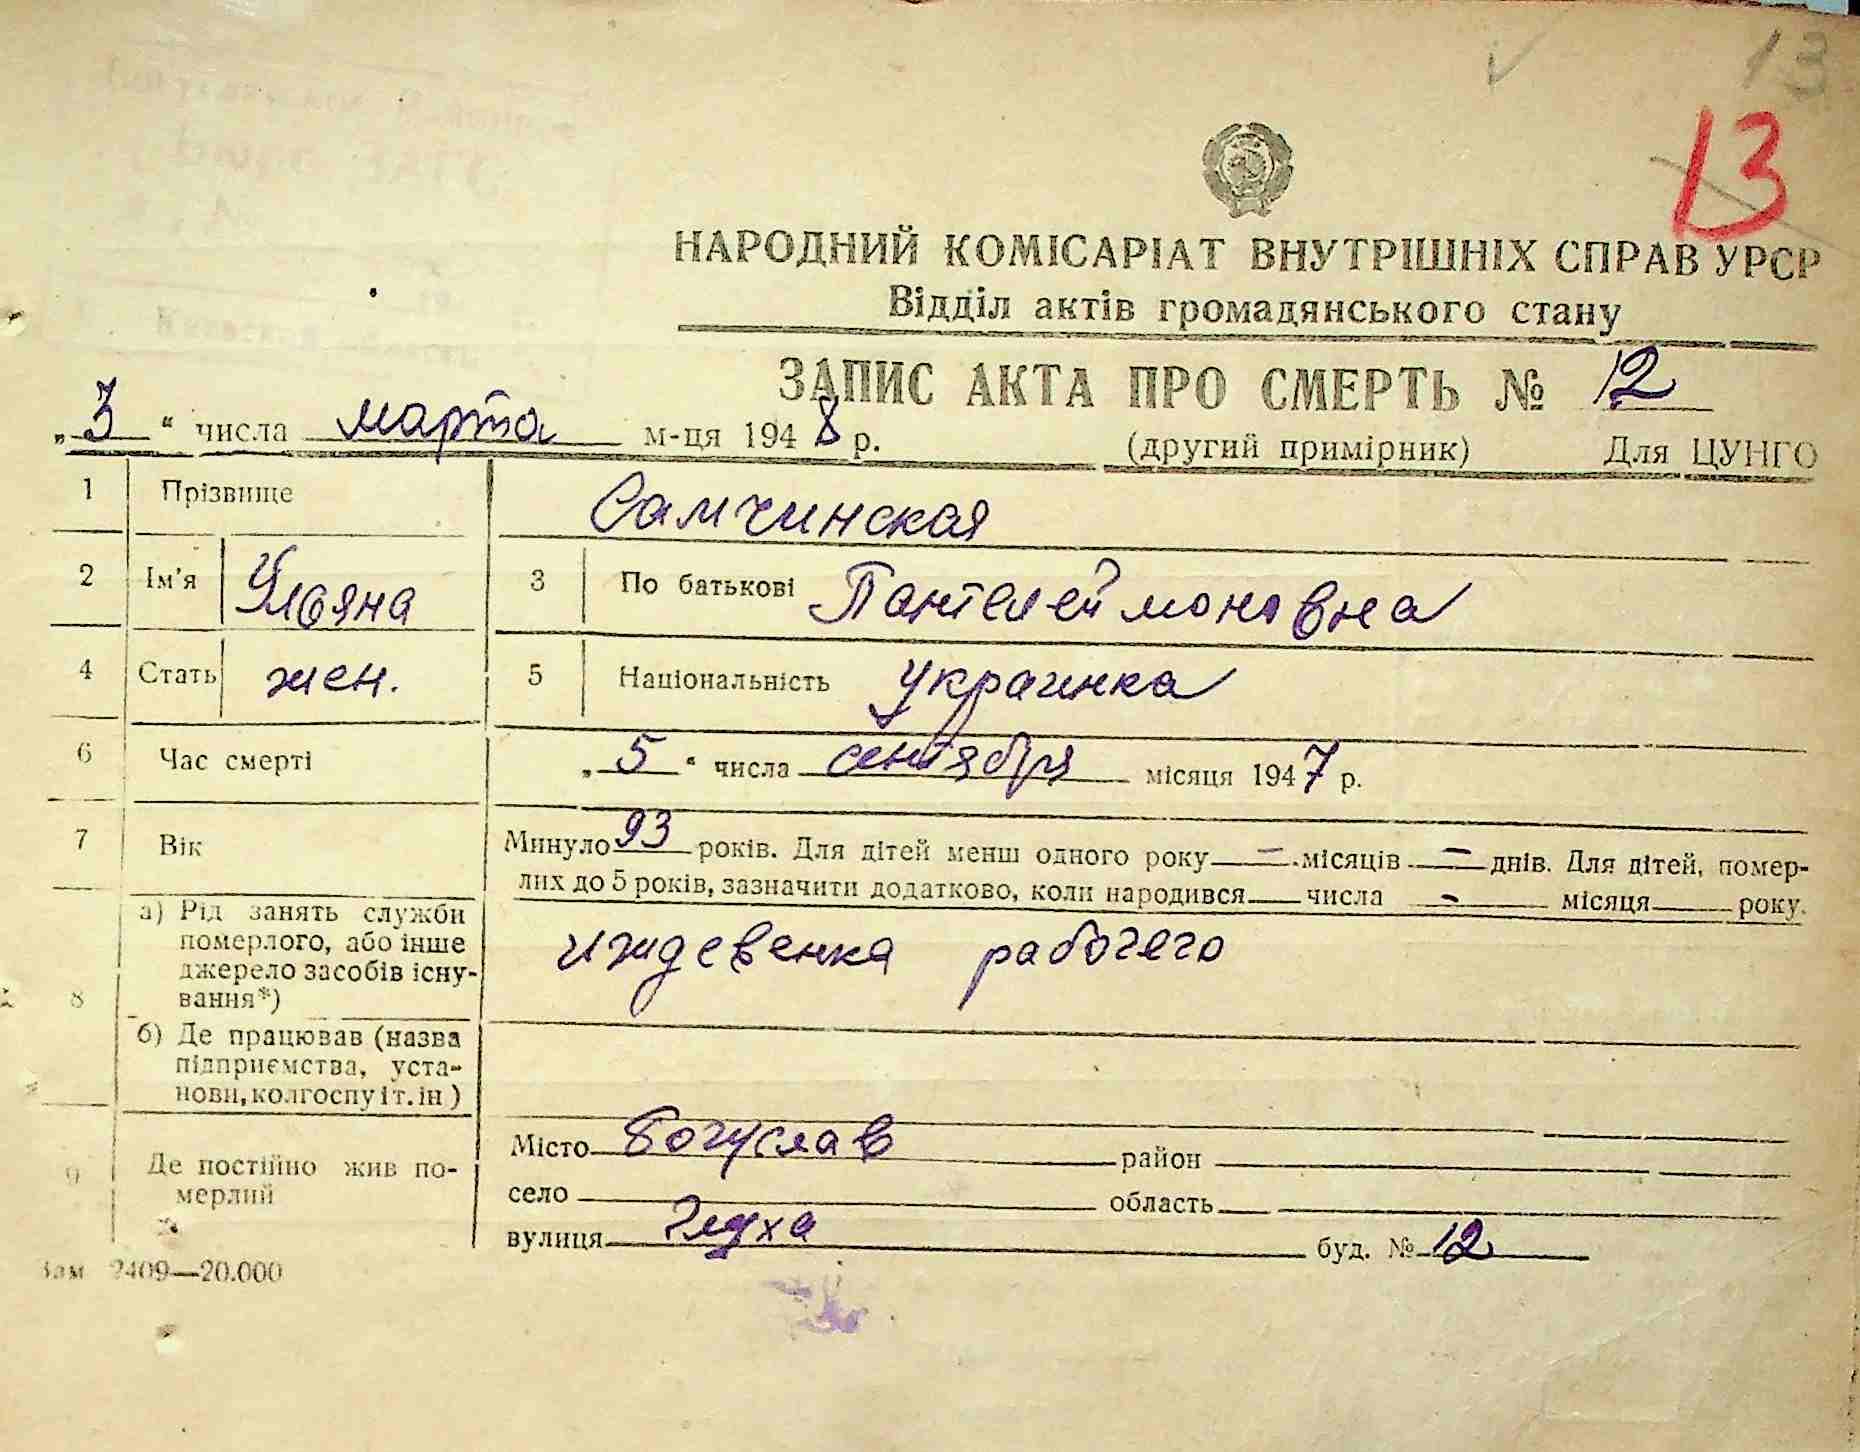 13
13
НАРОДНИЙ КОМІСАРІАТ ВНУТРІШНІХ СПРАВ УРСР
Відділ актів громадянського стану
ЗАПИС АКТА ПРО СМЕРТЬ № 12
„3“ числа марта м-ця 1948 р. (другий примірник) Для ЦУНГО
1 Прізвище Самчинская
2 Ім'я Ульяна 3 По батькові Пантелеймоновна
4 Стать жен. 5 Національність украинка
6 Час смерті „5“ числа сентября місяця 1947 р.
7 Вік Минуло 93 років. Для дітей менш одного року — місяців — днів. Для дітей, помер-
лих до 5 років, зазначити додатково, коли народився числа — місяця року.
8 а) Рід занять служби
померлого, або інше
джерело засобів існу-
вання*) иждевенка рабочего
б) Де працював (назва
підприємства, уста-
нови, колгоспу і т. ін)
9 Де постійно жив по-
мерлий
Місто Богуслав район
село область
вулиця буд. № 12
Зам 2409—20.000